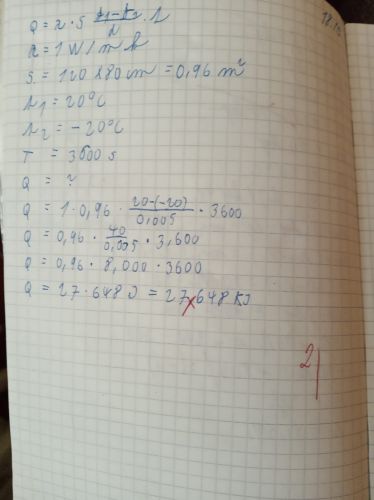 18.10
Q = λ · S t1-t2/d · t
λ = 1 W/m k
S = 120 x 80 cm = 0,96 m²
t1 = 20°C
t2 = -20°C
T = 3600 s
Q = ?
Q = 1 · 0,96 · 20-(-20)/0,005 · 3600
Q = 0,96 · 40/0,005 · 3,600
Q = 0,96 · 8,000 · 3600
Q = 27 · 648 J = 27 x 648 KJ
2